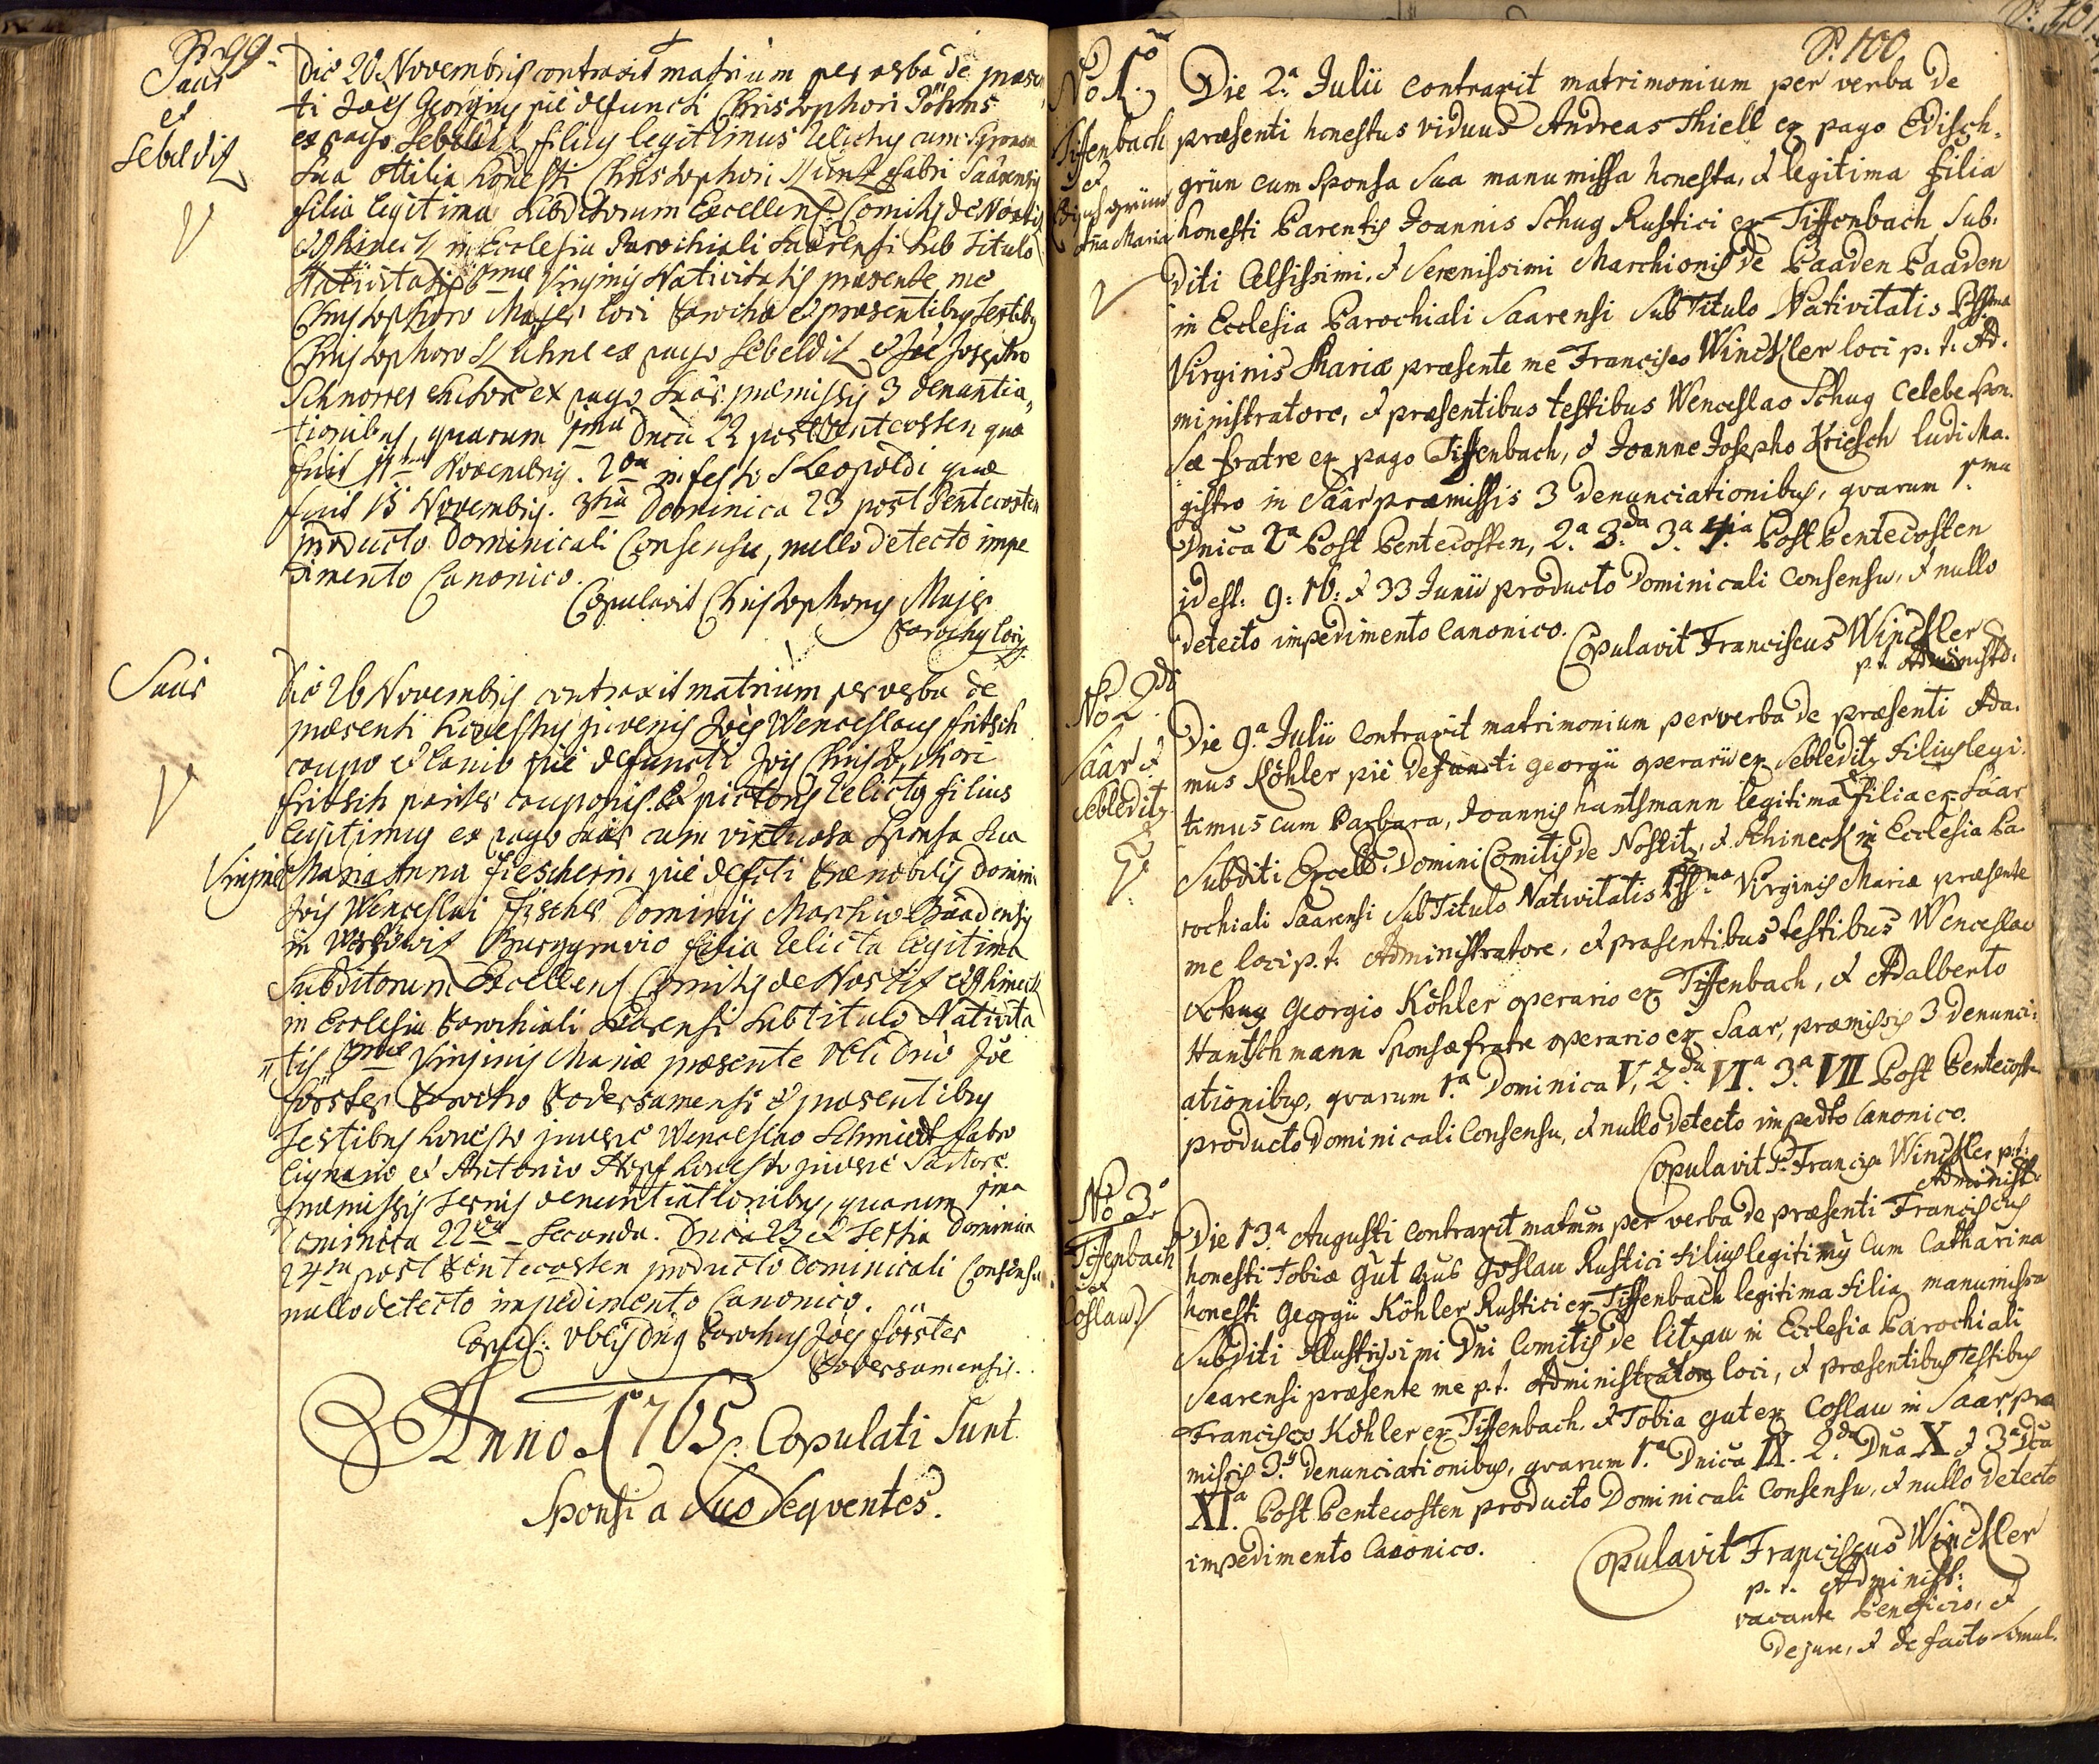 P. 99.
Saar
et
Sebelditz
Die 20 Novembris contraxit matrium per verba de præsen
ti Joës Georgius pie defuncti Christophori Böhms
ex pago Sebelditz filius legitimus relictus cum Sponsa
sua Ottilia honesti Christophori Kuntz fabri Saarensis
filia legitima subditorum Excellens. Comitis de Nostitz
et Rhineck in Ecclesia Parochiali Saarensi sub Titulo
Virginis Nativitatis præsente me
Christophoro Majer loci Parocho et præsentibus testibus
Christophoro ex pago Sebelditz et Joë Josepho
Schnorrer ex pago Saar præmissis 3 denuntia,
tionibus, quarum 1ma Dnca 22 post Pentecosten quæ
fuit 11ma Novembris. 2da in festo S Leopoldi quæ
fuit 15 Novembris. 3tia Dominica 23 post Pentecosten
producto Dominicali Consensu, nullo detecto impe
dimento Canonico.
Copulavit Christophorus Majer
Parochus loci
Saar
Die 26 Novembris contraxit matrium per verba de
præsenti honestus juvenis Joës Wenceslaus Fritsch
caupo et lanio pie defuncti Jois Christophori
Fritsch pariter cauponis et pictoris relictus filius
legitimus ex pago Saar cum virtuosa Sponsa sua
Virgine Maria Anna Fischerin pie defcti Prænobilis Domini
Jois Wenceslai Fischer Dominij Marchio Baadensis
in Burggravio filia relicta legitima
Subditorum Excellens Comitis de Nostitz et Rhineck
in Ecclesia Parochiali Sarensi sub titulo Nativita
tis Bmæ Virginis Mariæ præsente Dno Joë
Förster Parocho Podersamensi et præsentibus
Testibus honesto juvene Wenceslao Schmiedt fabro
lignario et Antonio Köpf honesto juvene Sartore
præmissis ternis denuntiationibus, quarum 1ma
Dominica 22da Secunda Dnca 23 et tertia Dominica
24ta post Pentecosten producto Dominicali Consensu
nullo detecto impedimento Canonico.
Copul: Dns Parochus Joës Förster
Podersamensis.
Anno 1765. Copulati Sunt
Sponsi a duo Seqventes.
P. 100
No 1mo
Tiffenbach
et
grün
Anna Maria
Die 2.a Julii Contraxit matrimonium per verba de
præsenti honestus viduus Andreas Thiell ex pago Edisch-
grün cum Sponsa Sua manumissa honesta, et legitima filia
honesti Parentis Joannis Schug Rustici ex Tiffenbach Sub-
diti Celsissimi, et Serenissimi Marchionis de Baaden Baaden
in Ecclesia Parochiali Saarensi Sub Titulo Nativitatis Bssmæ
Virginis Mariæ præsente me Francisco Winckler loci p. t. Ad-
ministratore, et præsentibus testibus Wenceslao Schug Celebe Spon-
sæ fratre ex pago Tiffenbach, et Joanne Josepho Kriesch ludi Ma-
gistro in Saar præmissis 3 denunciationibus, qvarum 1.ma
Dnica 2a Post Pentecosten, 2.a 3.da 3.a 4.ia Post Pentecosten
id est: 9: 16: et 33 Junii producto Dominicali Consensu, et nullo
detecto impedimento Canonico.
Copulavit Franciscus Winckler
p. t. Administ:
No 2do
Saar et
Sebleditz
Die 9.a Julii Contraxit matrimonium per verba de præsenti Ada-
mus Köhler pie defuncti Georgii operarii ex Sebleditz filius legi-
timus cum Barbara, Joannis Hantsmann legitima filia ex Saar
Subditi Excell. Domini Comitis de Nostitz, et Rhineck in Ecclesia Pa-
rochiali Saarensi Sub Titulo Nativitatis Bssmæ Virginis Mariæ præsente
me loci p. t. Administratore, et præsentibus testibus Wenceslao
Schug Georgio Köhler operario ex Tiffenbach, et Adalberto
Hantschmann Sponsæ fratre operario ex Saar, præmissis 3 denunci-
ationibus, qvarum 1.a Dominica V, 2.da VI.a 3.a VII Post Pentecost.
producto Dominicali Consensu, et nullo detecto impedto Canonico.
Copulavit P. Francis. Winckler p. t.
Administ.
No 3o
Tiffenbach
et
Coslau
Die 13.a Augusti Contraxit matrium per verba de præsenti Franciscus
honesti Tobiæ Gut Goslau Rustici filius legitimus cum Catharina
honesti Georgii Köhler Rustici ex Tiffenbach legitima filia manumissa
Subditi Illustrissimi Dni Comitis de Litzau in Ecclesia Parochiali
Saarensi præsente me p. t. Administratore loci, et præsentibus testibus
Francisco Köhler ex Tiffenbach, et Tobia Gut ex Coslau in Saar præ
missis 3. denunciationibus, qvarum 1.a Dnica IX. 2.da Dna X et 3.a Dca
XI.a Post Pentecosten producto Dominicali Consensu, et nullo detecto
impedimento Canonico.
Copulavit Franciscus Winckler
p. t. Administ:
vacante beneficio, et
de jure, et de facto simul.